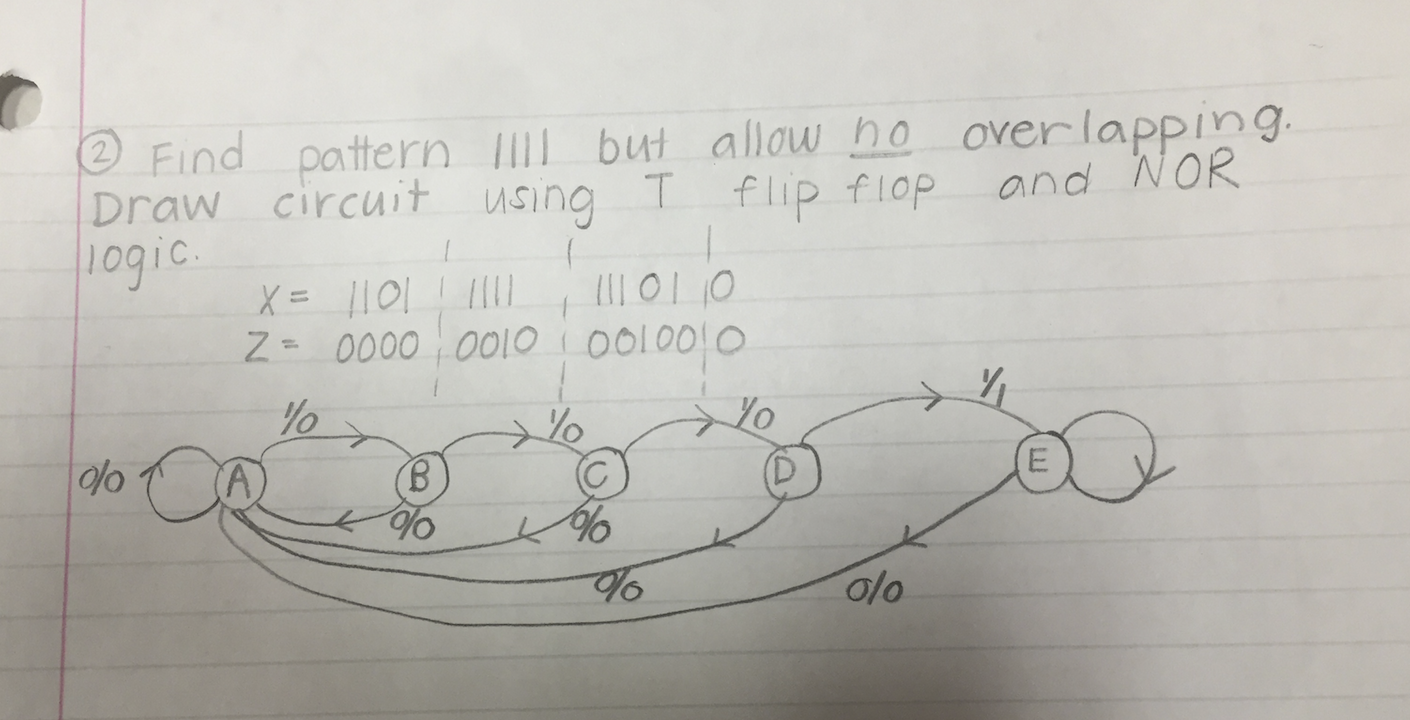 ② Find pattern 1111 but allow no overlapping.
Draw circuit using T flip flop and NOR
logic.
X = 1101 1111 11101 0
Z = 0000 0010 00100 0
1/0 1/0 1/0 1/1
0/0 A B C D E
0/0 0/0
0/0 0/0